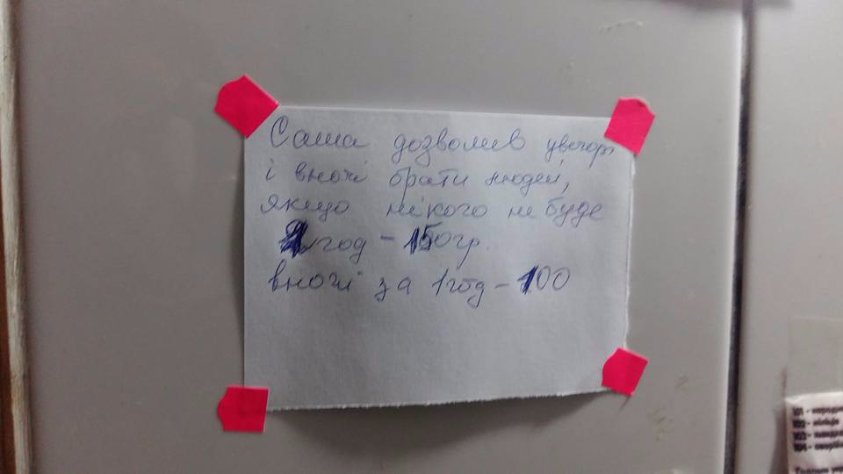 Саша дозволив увечорі
і вночі брати людей,
якщо нікого не буде
1 год - 150гр.
вночі за 1 год - 100